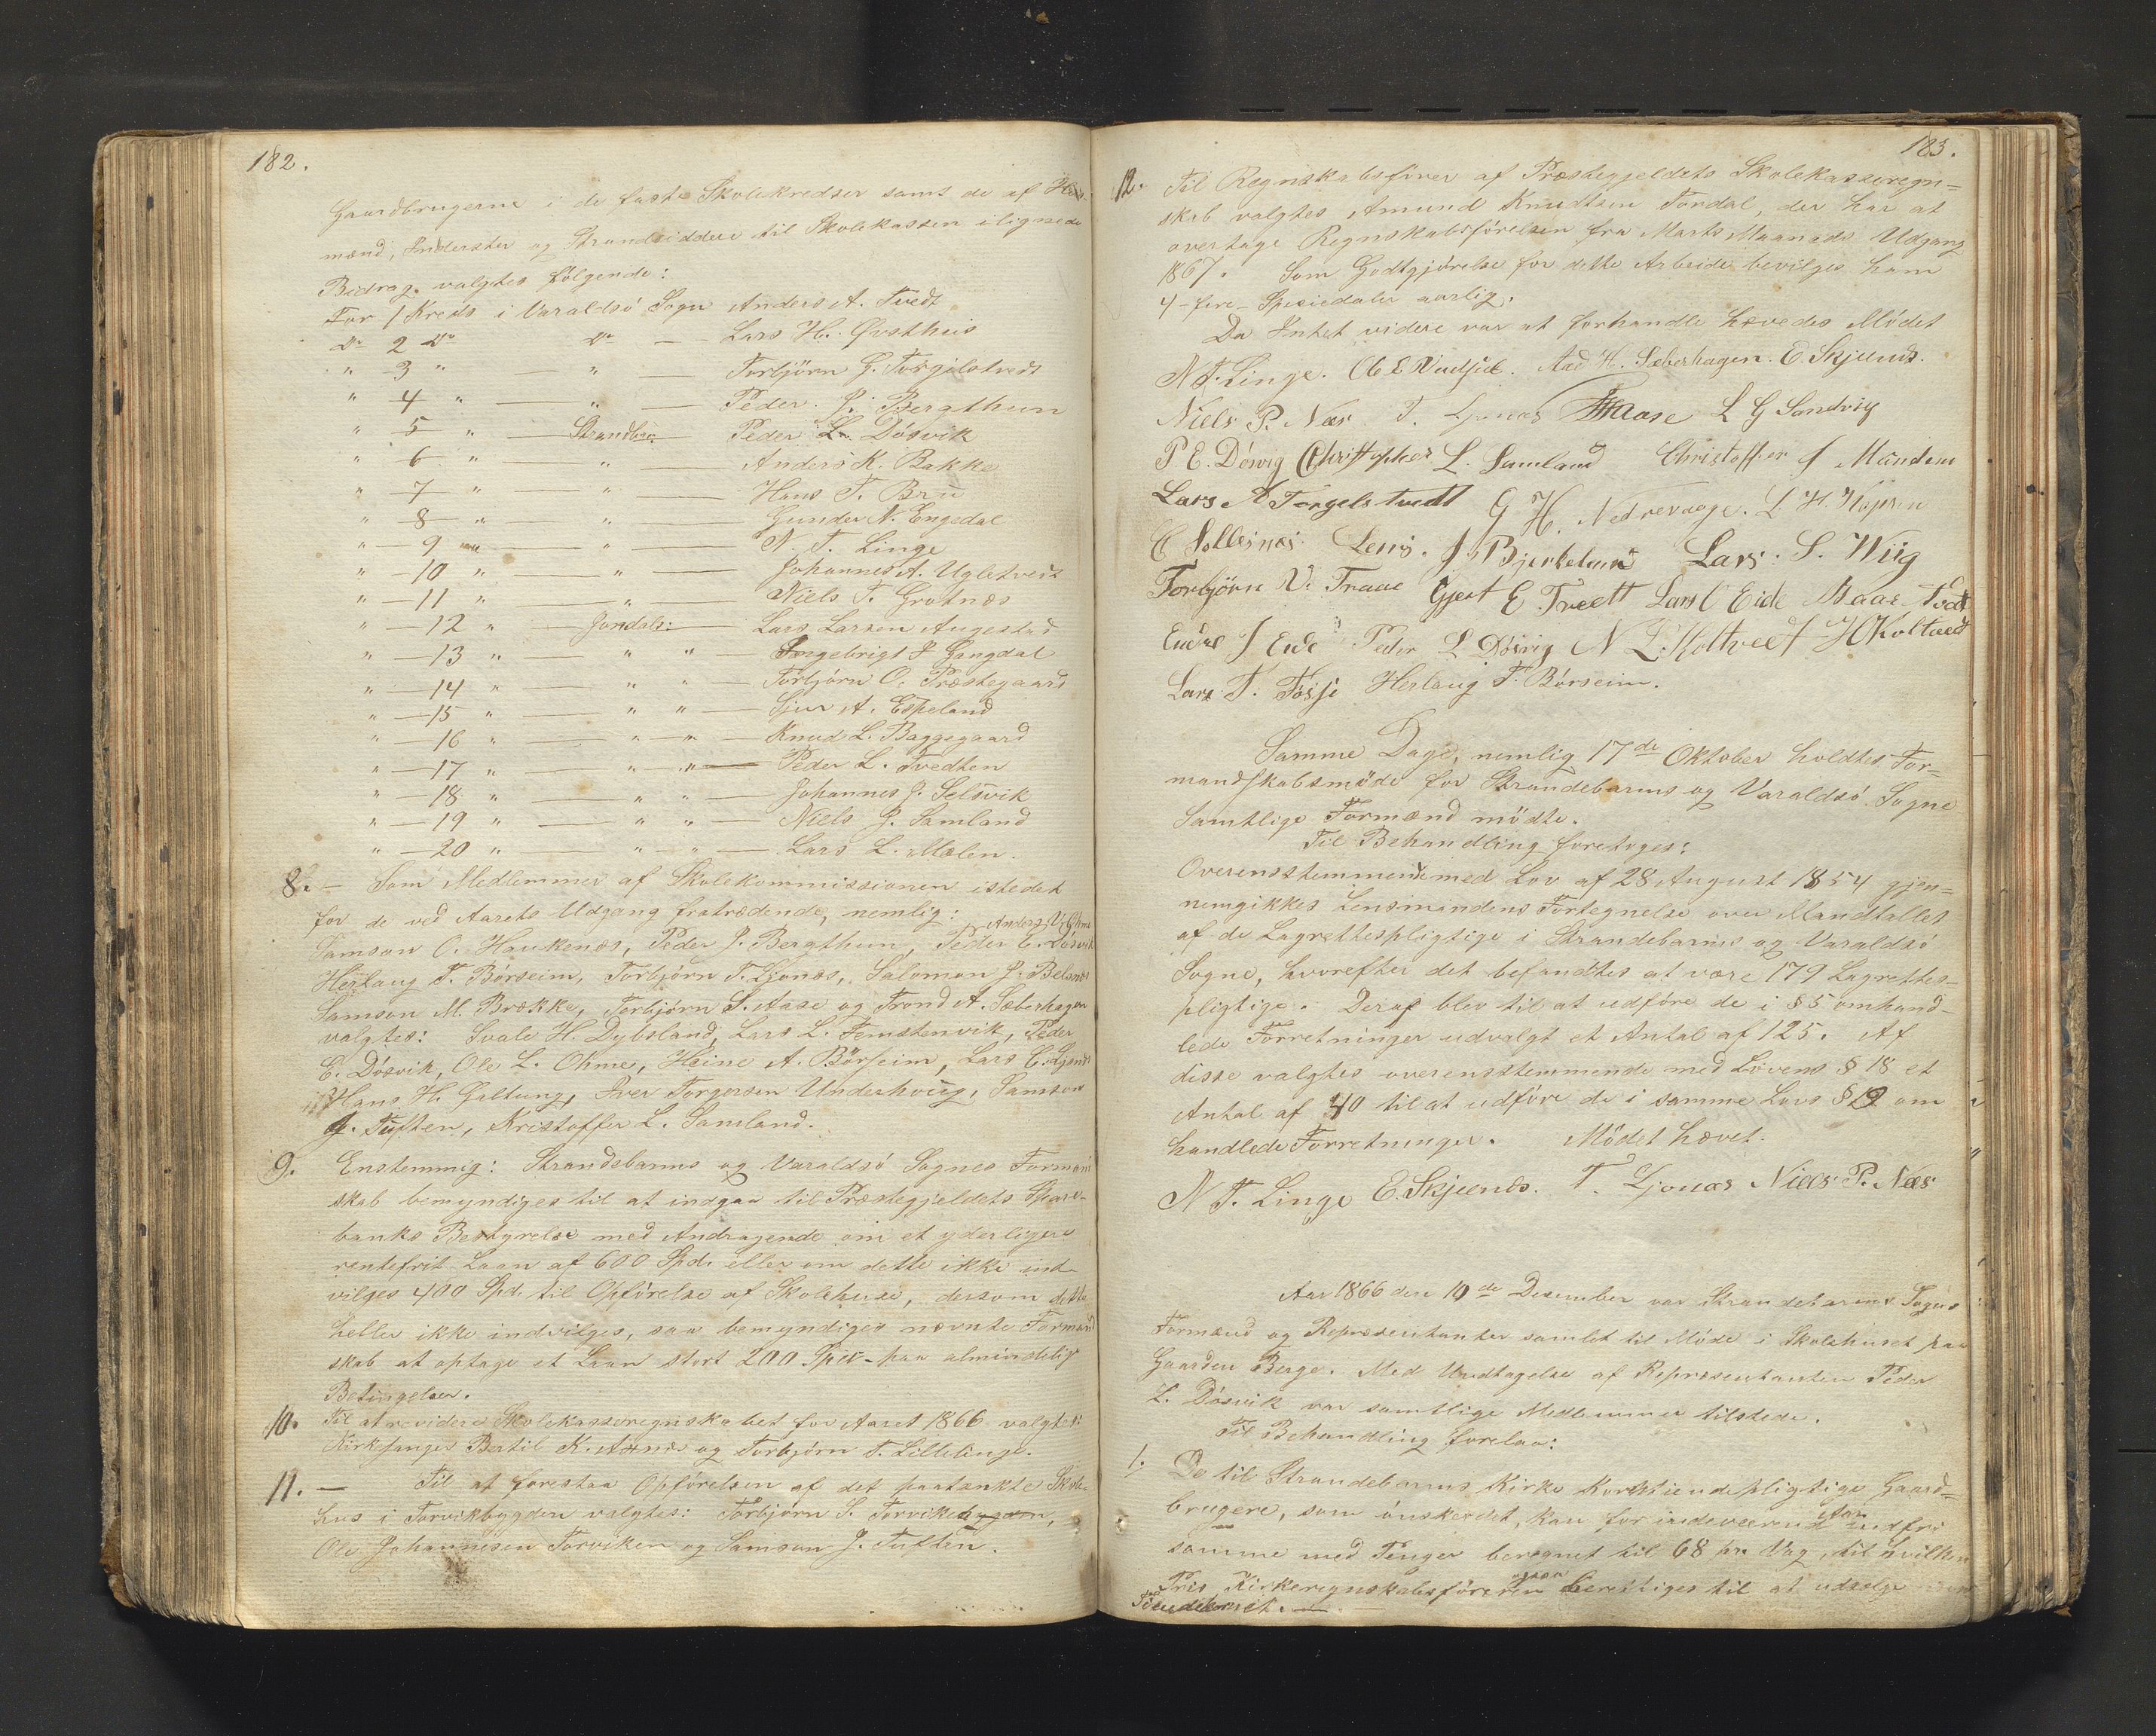 182.
Gaardbrugerne i de faste Skolekredser samt de af Huus-
mænd, Inderster og Strandsiddere til Skolekassen ilignede
Bidrag, valgtes følgende:
For 1 Kreds i Varaldsö Sogn Anders A. Tvedt
Do 2 Do Do — Lars H. Øvsthuis
" 3 " — " — Torbjörn G. Torgilstvedt
" 4 " — " — Peder J. Bergthun
" 5 " — Strandbr: — Peder L. Dösvik
" 6 " — " — Anders K. Bakke
" 7 " — " — Hans T. Bru
" 8 " — " — Gunder N. Engedal
" 9 " — " — N. T. Linge
" 10 " — " — Johannes A. Ugletvedt
" 11 " — " — Niels T. Grotnæs
" 12 " — Jondals: — Lars Larsen Augestad
" 13 " — " " — Ingebrigt J Gangdal
" 14 " — " " — Torbjörn O. Præstegaard
" 15 " — " " — Sjur A. Espeland
" 16 " — " " — Knud L. Baggegaard
" 17 " — " " — Peder L. Tvedten
" 18 " — " " — Johannes J. Selsvik
" 19 " — " " — Niels J. Samland
" 20 " — " " — Lars L. Mælen.
8. — Som Medlemmer af Skolekommissionen istedet
for de ved Aarets Udgang fratrædende, nemlig:
Anders V. Ohme
Samson O. Haukenæs, Peder J. Bergthun, Peder E. Dösvik
Herlaug T. Börseim, Torbjörn T. Ljonæs, Salomon J. Belsnæs
Samson M. Brække, Torbjörn S. Aase og Trond A. Sæberhagen
valgtes: Svale H. Dybsland, Lars L. Femstenvik, Peder
E. Dösvik, Ole L. Ohme, Heine A. Börseim, Lars E. Ljonæs
Hans H. Galtung, Iver Torgersen Underhoug, Samson
J. Tuften, Kristoffer L. Samland.
9. Enstemmig: Strandebarms og Varaldsö Sognes Formand
skab bemyndiges til at indgaa til Præstegjeldets Spare-
banks Bestyrelse med Andragende om et yderligere
rentefrit Laan af 600 Spd. eller om dette ikke ind-
vilges 400 Spd. til Opförelse af Skolehuse, dersom dette
heller ikke indvilges, saa bemyndiges nævnte Formand
skab at optage et Laan stort 200 Spd - paa almindelige
Betingelser.
10. Til at revidere Skolekasseregnskabet for Aaret 1866 valgtes:
Kirkesanger Bertil K. Axnes og Torbjörn T. Lillelinge.
11. — Til at forestaa Opförelsen af det paatænkte Skole-
hus i Torvikbygden valgtes: Torbjörn S. Torvikebygden,
Ole Johannesen Torviken og Samson J. Tuften.
183.
12. Til Regnskabsförer af Præstegjeldets Skolekasseregn=
skab valgtes Amund Knudtsen Tordal, der har at
overtage Regnskabsförelsen fra Marts Maaneds Udgang
1867. Som Godtgjörelse for dette Arbeide bevilges ham
4 - fire - Speciedaler aarlig.
Da Intet videre var at forhandle hævedes Mödet
N T. Linge. Ole E Vindsiel. Aad H. Sæberhagen. E. Skjenæs.
Niels P. Næs T. Ljonæs Aase L G Sandvig
P E. Dösvig Christopher L. Samland Christoffer J Maudem
Lars A Torgelstvedt G H. Nedrevaage. L. H. Kopren
E Solles næs. Lens. J Bjerkeland Lars. S. Wiig
Torbjörn V. Traae Gjert E Tveett Lars O Eide Baar Tvedt
Endre J Eide Peder L Dösvig N L. Holtvedt H Holtvedt
Lars T. Fosse Herlaug T. Börseim.
Samme Dage, nemlig 17de Oktober holdtes For=
mandskabsmöde for Strandebarms og Varaldsö Sogne
Samtlige Formænd mödte.
Til Behandling foretoges:
Overensstemmende med Lov af 28 August 1854 gjen=
nemgikkes Lensmandens Fortegnelse over Mandtallet
af de Lagrettespligtige i Strandebarms og Varaldsö
Sogne, hvorefter det befandtes at være 179 Lagrettes-
pligtige. Deraf blev til at udföre de i § 5 omhand-
lede Forretninger udvalgt et Antal af 125. Af
disse valgtes overensstemmende med Lovens § 18 et
Antal af 40 til at udföre de i samme Lovs § 19 om
handlede Forretninger. Mödet hævet.
N T. Linge E. Skjenæs. T. Ljonæs Niels P. Næs
Aar 1866 den 10de Desember var Strandebarms Sogns
Formænd og Repræsentanter samlet til Möde i Skolehuset paa
Gaarden Berge. Med Undtagelse af Repræsentanten Peder
L. Dösvik var samtlige Medlemmer tilstede.
Til Behandling forelaa:
1. De til Strandebarms Kirke Korntiendepligtige Gaard=
brugere, som önsker det, kan for indeværende Aar udfri
samme med Penger beregnet til 68 pr. Vog, til hvilken
Pris Kirkeregnskabsföreren ogsaa berettiges til at udsælge
Tiendekornet. —